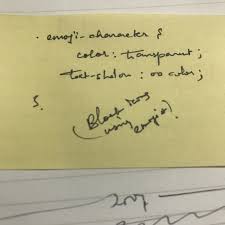 . emoji-character {
color: transparent;
text-shadow: 0 0 color;
}
(Black icons
using
emojis)